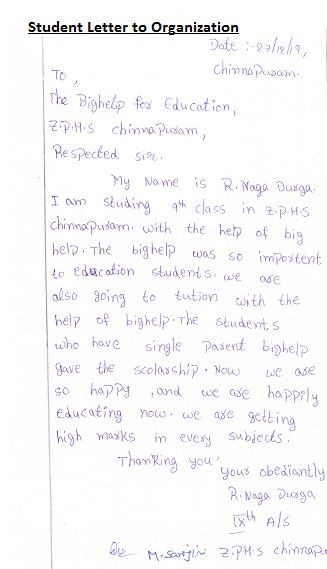 Student Letter to Organization
Date :- 27/12/19,
Chinnapusam.
To,
The Bighelp for Education,
Z.P.H.S Chinnapuram,
Respected sir.
My Name is R.Naga Durga.
I am studing 9th class in Z.P.H.S
chinnapuram. with the help of big
help. The bighelp was so importent
to education students. we are
also going to tution with the
help of bighelp. The students
who have single parent bighelp
gave the scolarship. Now we are
so happy, and we are happily
educating now. we are getting
high marks in every subjects.
Thanking you
your obediantly
R. Naga Durga
IXth A/S
M. Sarojini Z.P.H.S chinnapu